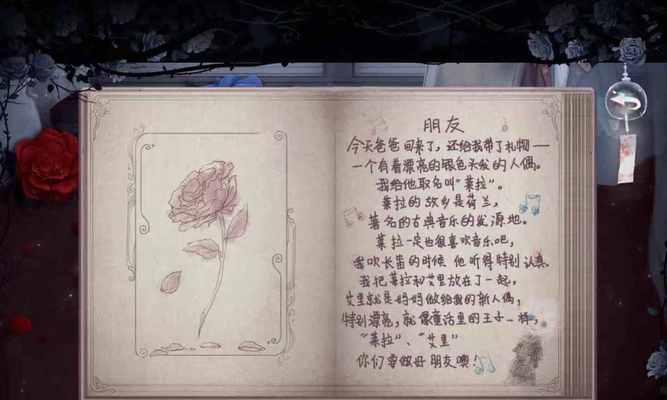 朋友
今天爸爸回来了，还给我带了礼物——
一个有着漂亮的银色头发的人偶。
我给他取名叫“莱拉”。
莱拉的故乡是荷兰，
著名的古典音乐的发源地。
莱拉一定也很喜欢音乐吧，
我吹长笛的时候他听得特别认真
我把莱拉和艾里放在了一起，
艾里就是妈妈做给我的新人偶，
特别漂亮，就像童话里的王子一样，
“莱拉”、“艾里”
你们要做好朋友噢！